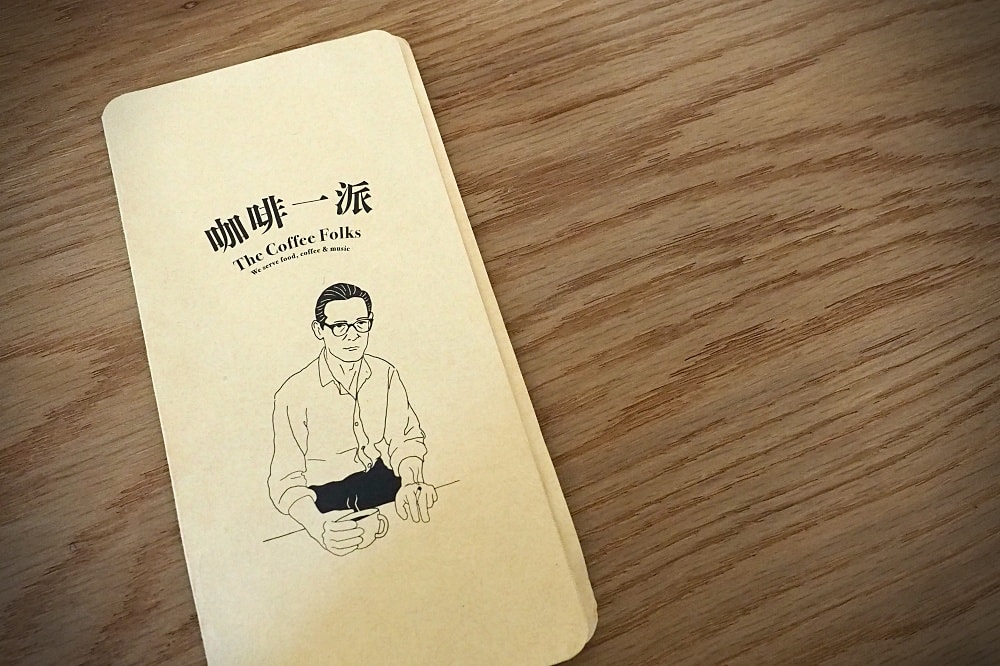 咖啡一派
The Coffee Folks
We serve food, coffee & music